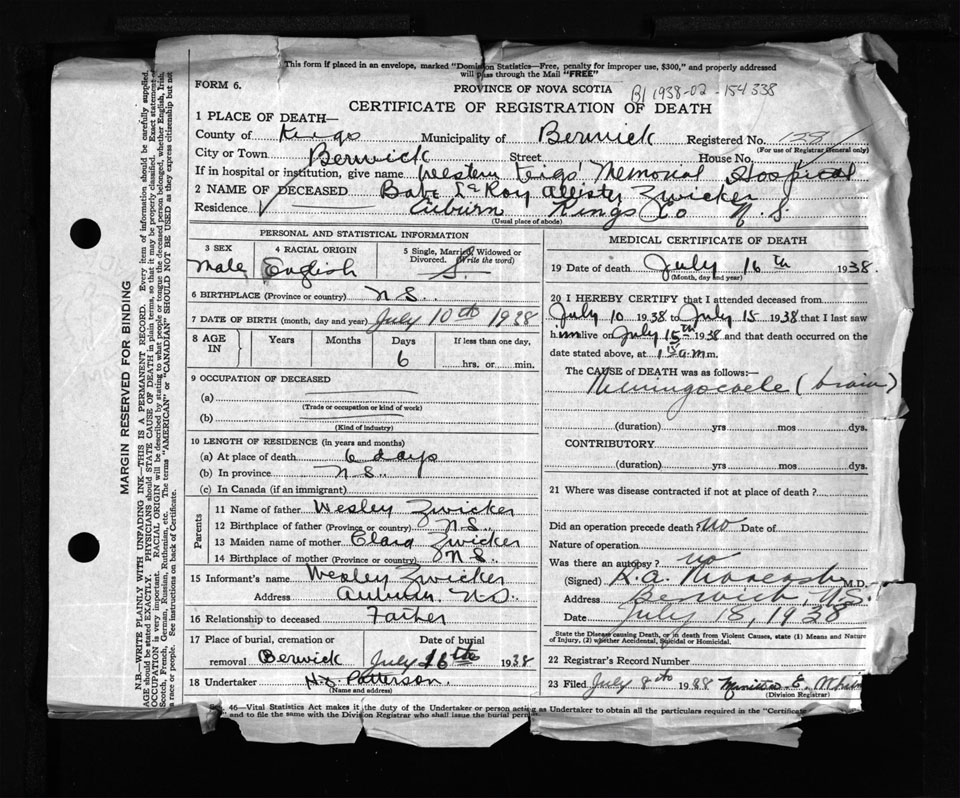 This form if placed in an envelope, marked "Dominion Statistics—Free, penalty for improper use, $300," and properly addressed
will pass through the Mail "FREE"
FORM 6.
PROVINCE OF NOVA SCOTIA
B) 1938-02-154338
CERTIFICATE OF REGISTRATION OF DEATH
1 PLACE OF DEATH—
County of Kings Municipality of Berwick Registered No. 128
(For use of Registrar General only)
City or Town Berwick Street House No.
If in hospital or institution, give name Western Kings' Memorial Hospital
2 NAME OF DECEASED Babe LeRoy Allister Zwicker
Residence Auburn Kings Co N.S.
(Usual place of abode)
PERSONAL AND STATISTICAL INFORMATION
3 SEX Male
4 RACIAL ORIGIN English
5 Single, Married, Widowed or Divorced. (Write the word) S.
6 BIRTHPLACE (Province or country) N.S.
7 DATE OF BIRTH (month, day and year) July 10th 1938
8 AGE IN Years Months Days If less than one day,
6 hrs. or min.
9 OCCUPATION OF DECEASED
(a)
(Trade or occupation or kind of work)
(b)
(Kind of industry)
10 LENGTH OF RESIDENCE (in years and months)
(a) At place of death 6 days
(b) In province N.S.
(c) In Canada (if an immigrant)
Parents
11 Name of father Wesley Zwicker
12 Birthplace of father (Province or country) N.S.
13 Maiden name of mother Clara Zwicker
14 Birthplace of mother (Province or country) N.S.
15 Informant's name Wesley Zwicker
Address Auburn N.S.
16 Relationship to deceased Father
17 Place of burial, cremation or removal Berwick
Date of burial July 16th 1938
18 Undertaker H.S. Patterson.
(Name and address)
MEDICAL CERTIFICATE OF DEATH
19 Date of death July 16th 1938.
(Month, day and year)
20 I HEREBY CERTIFY that I attended deceased from
July 10 1938 to July 15 1938 that I last saw
him alive on July 15th 1938 and that death occurred on the
date stated above, at a.m.
The CAUSE of DEATH was as follows:—
(brain)
(duration) yrs mos dys.
CONTRIBUTORY
(duration) yrs mos dys.
21 Where was disease contracted if not at place of death?
Did an operation precede death? No Date of
Nature of operation
Was there an autopsy? no
(Signed) M.D.
Address Berwick, N.S.
Date July 18, 1938
State the Disease causing Death, or in death from Violent Causes, state (1) Means and Nature
of Injury, (2) whether Accidental, Suicidal or Homicidal.
22 Registrar's Record Number
23 Filed July 8th 1938
(Division Registrar)
46—Vital Statistics Act makes it the duty of the Undertaker or person acting as Undertaker to obtain all the particulars required in the "Certificate
and to file the same with the Division Registrar who shall issue the burial
MARGIN RESERVED FOR BINDING
N.B.—WRITE PLAINLY WITH UNFADING INK—THIS IS A PERMANENT RECORD. Every item of information should be carefully supplied.
AGE should be stated EXACTLY. PHYSICIANS should STATE CAUSE OF DEATH in plain terms, so that it may be properly classified. Exact statement
OCCUPATION is very important. RACIAL ORIGIN will be described by stating to what people or tongue the deceased person belonged, whether English, Irish,
Scotch, French, German, Russian, Ruthenian, etc. The terms "AMERICAN" or "CANADIAN" SHOULD NOT BE USED as they express citizenship but not
a race or people. See instructions on back of Certificate.